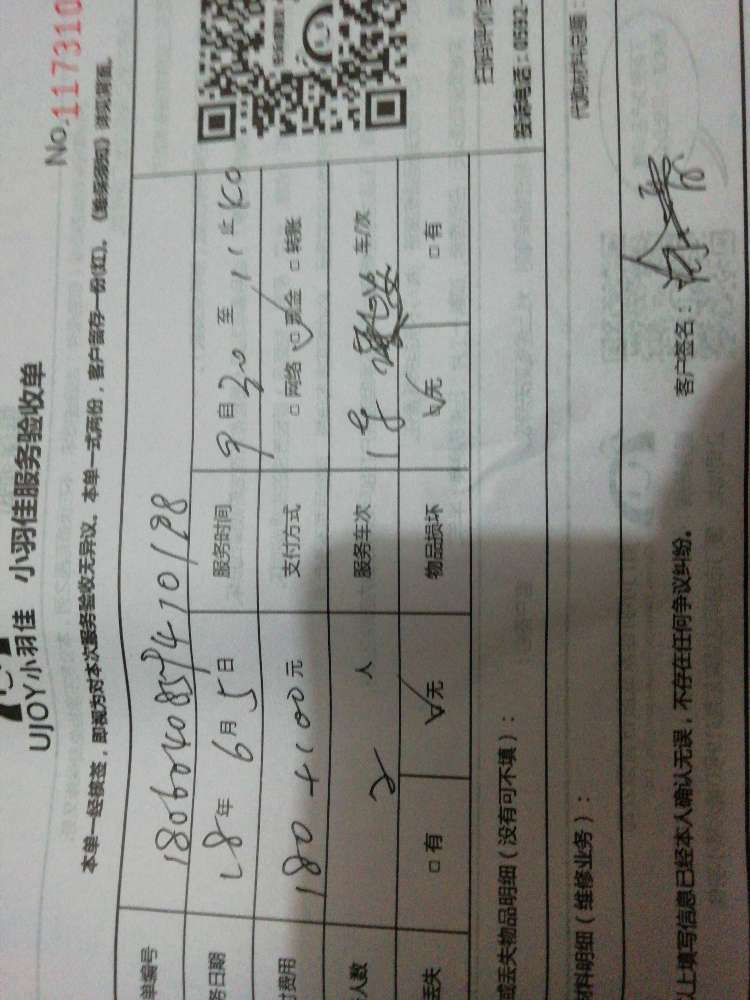 No.117310
UJOY小羽佳 小羽佳服务验收单
本单一经核签，即视为对本次服务验收无异议。本单一式两份，客户留存一份(红)。《维保须知》详见背面。
单编号 1806040859410128
务日期 18年6月5日 服务时间 9自30至11止40
费用 180+100元 支付方式 □网络 □现金 □转账
人数 2人 服务车次 车/次
丢失 □有 □无 物品损坏 □无 □有
扫码评价
投诉电话：0592-
或丢失物品明细（没有可不填）：
材料明细（维修业务）： 代购材料总额：
以上填写信息已经本人确认无误，不存在任何争议纠纷。 客户签名：